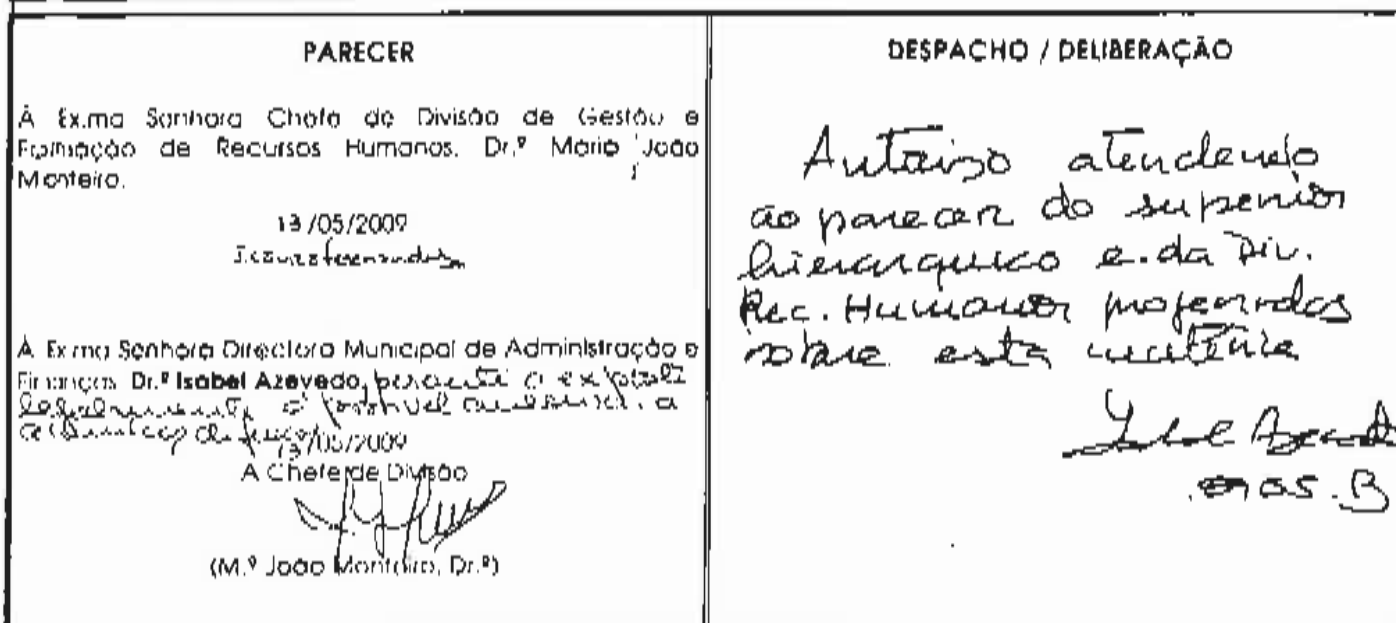 PARECER
À Ex.ma Senhora Chefe de Divisão de Gestão e
Formação de Recursos Humanos, Dr.ª Maria João
Monteiro.
13/05/2009
À Ex.ma Senhora Directora Municipal de Administração e
Finanças Dr.ª Isabel Azevedo, perante o exposto
legalmente é possível
13/05/2009
A Chefe de Divisão
(M.ª João Monteiro, Dr.ª)
DESPACHO / DELIBERAÇÃO
Autorizo atendendo
ao parecer do superior
hierarquico e da Div.
Rec. Humanos proferidos
sobre esta matéria